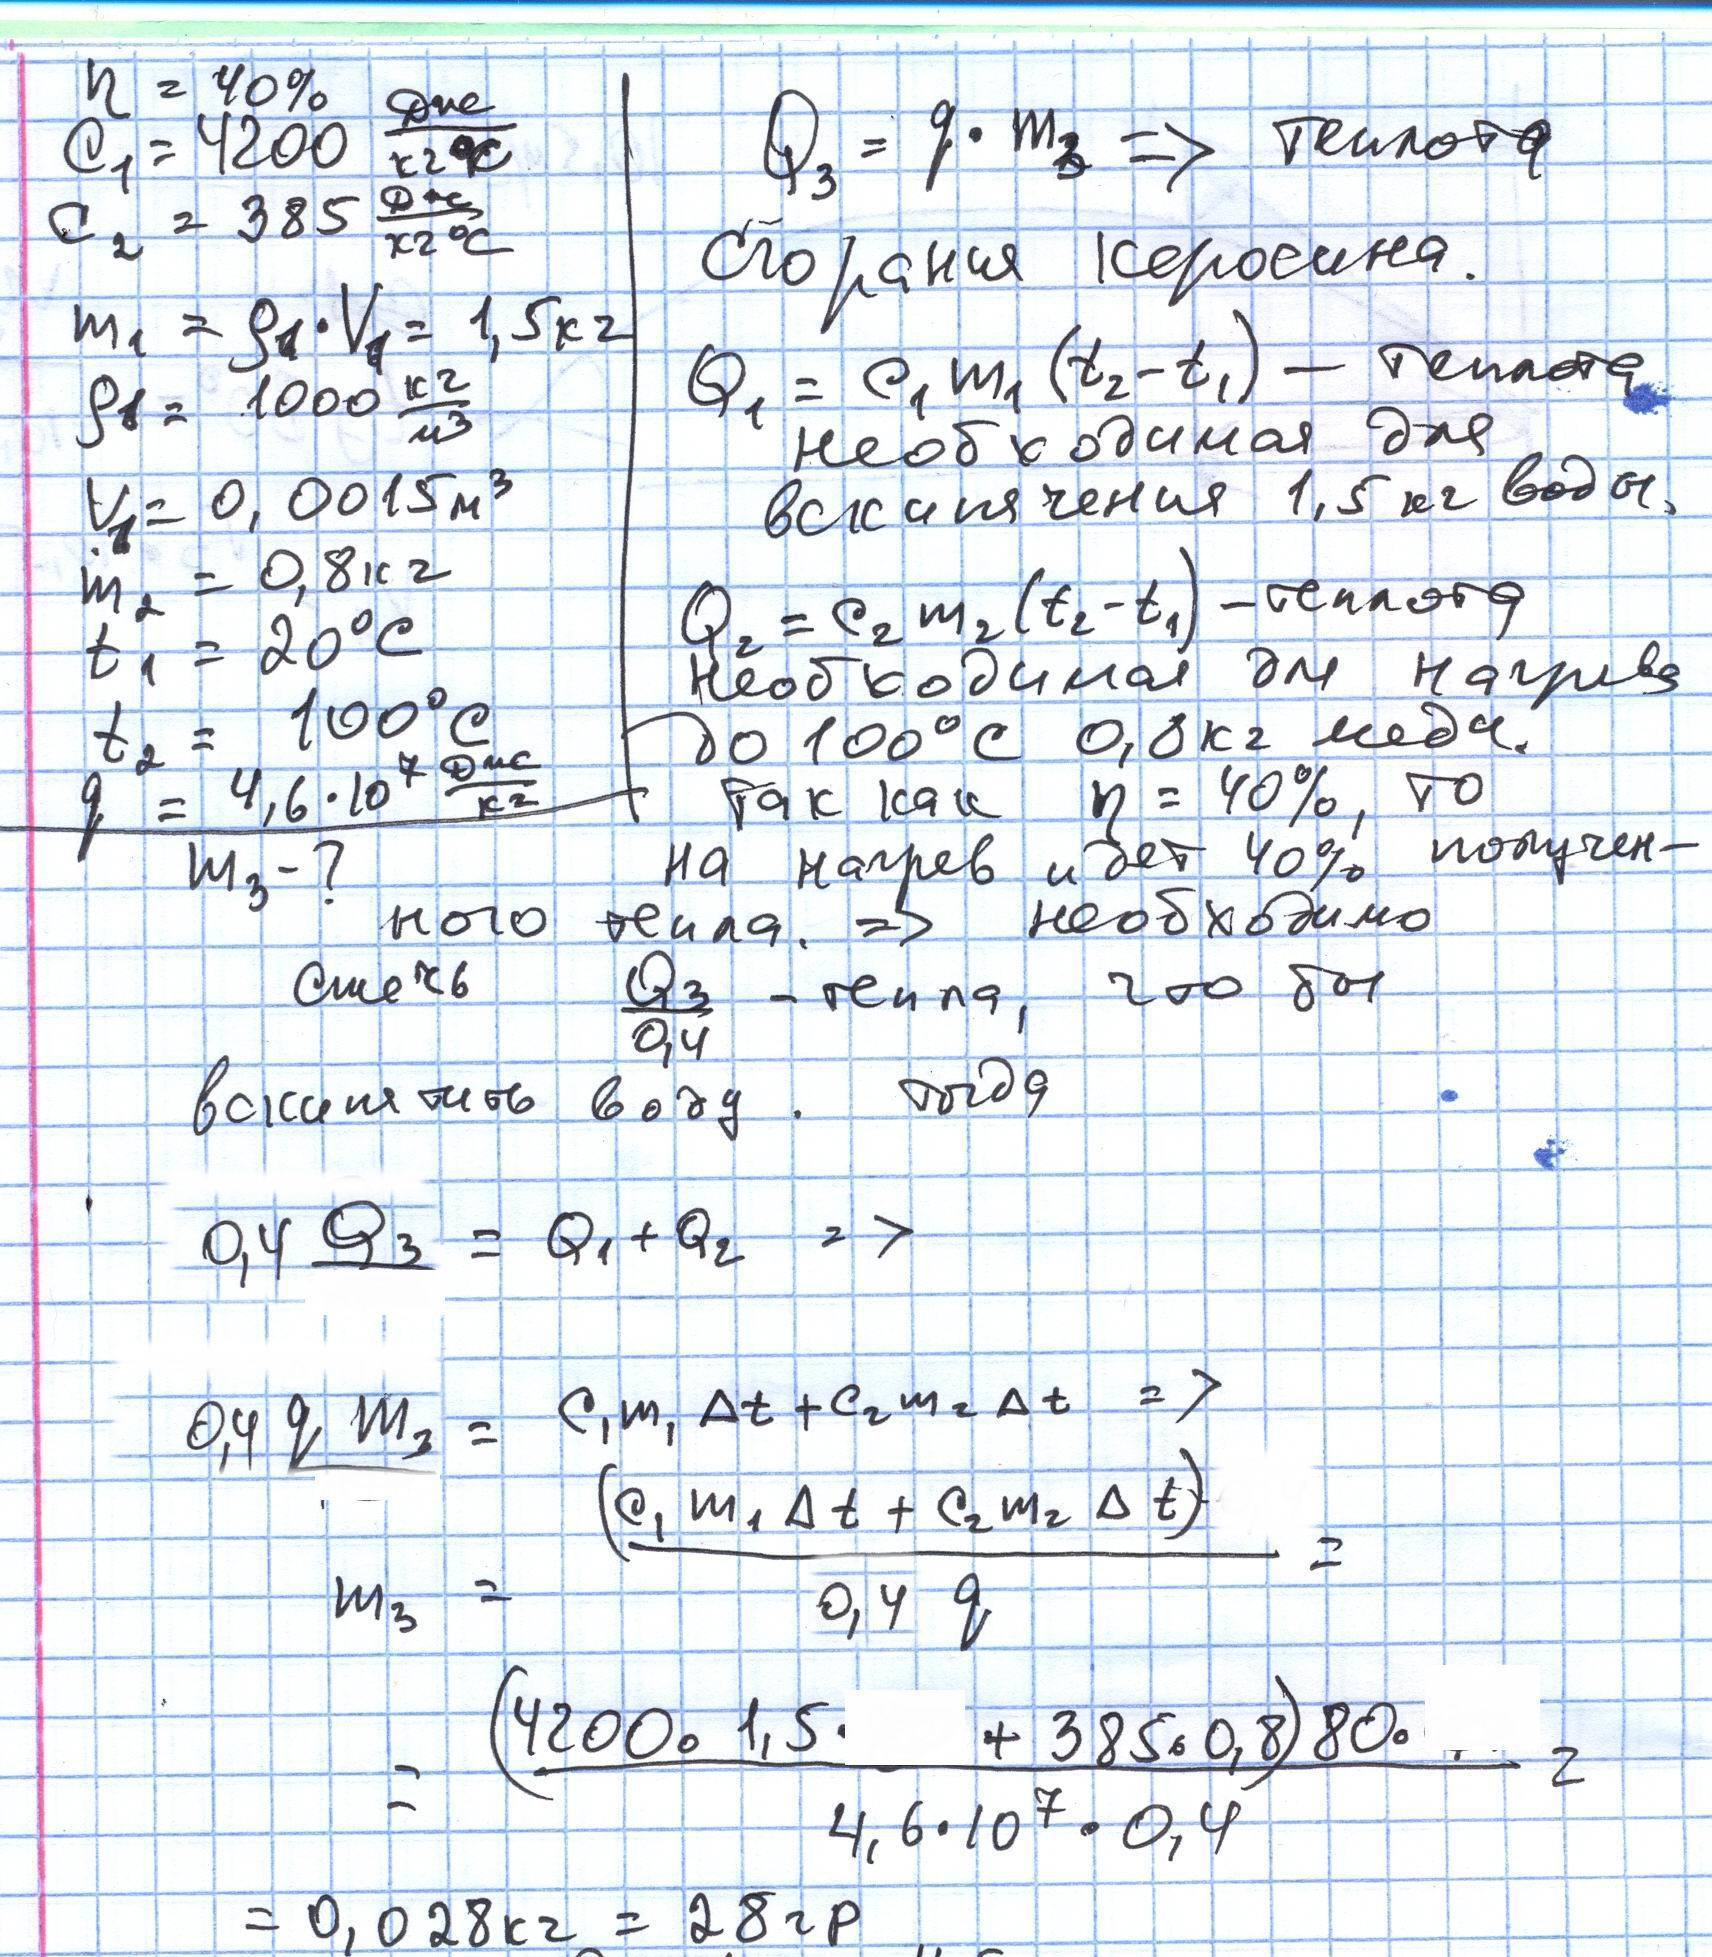 η = 40%
C₁ = 4200 Дж/кг°С
C₂ = 385 Дж/кг°С
m₁ = ρ₁·V₁ = 1,5кг
ρ₁ = 1000 кг/м³
V₁ = 0,0015м³
m₂ = 0,8кг
t₁ = 20°С
t₂ = 100°С
q = 4,6·10⁷ Дж/кг
m₃ - ?
Q₃ = q·m₃ => теплота
сгорания керосина.
Q₁ = c₁m₁(t₂-t₁) – теплота
необходимая для
вскипячения 1,5 кг воды.
Q₂ = c₂m₂(t₂-t₁) – теплота
необходимая для нагрева
до 100°С 0,8кг меди.
Так как η = 40%, то
на нагрев идет 40% получен-
ного тепла. => необходимо
сжечь Q₃/0,4 – тепла, что бы
вскипятить воду. тогда
0,4 Q₃ = Q₁ + Q₂ =>
0,4 q m₃ = c₁m₁Δt + c₂m₂Δt =>
m₃ = (c₁m₁Δt + c₂m₂Δt) / 0,4 q =
= (4200·1,5· + 385·0,8)80· / 4,6·10⁷·0,4 =
= 0,028кг = 28гр